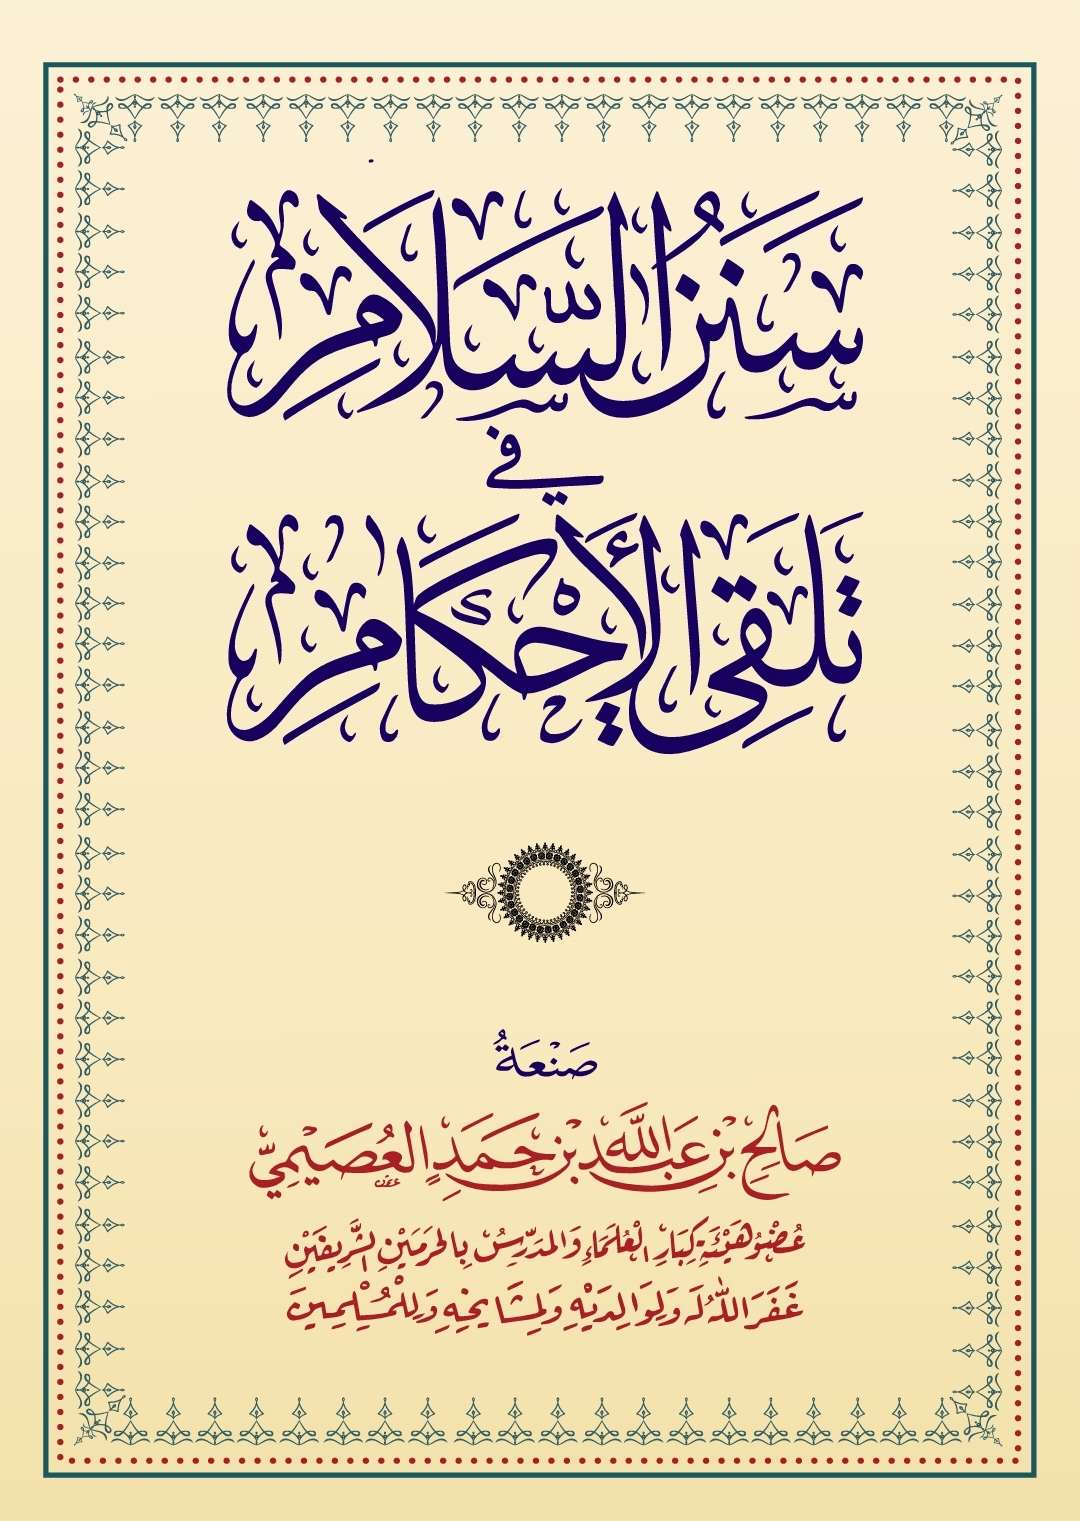 سَنَنُ السَّلَامِ
في
تَلَقِّي الأَحْكَامِ
صَنْعَةُ
صَالِحِ بْنِ عَبْدِ اللَّهِ بْنِ حَمَدٍ العُصَيْمِيِّ
عُضْوُ هَيْئَةِ كِبَارِ الْعُلَمَاءِ وَالمدَرِّسُ بِالحَرَمَيْنِ الشَّرِيفَيْنِ
غَفَرَ اللَّهُ لَهُ وَلِوَالِدَيْهِ وَلِمَشَايِخِهِ وَلِلْمُسْلِمِينَ